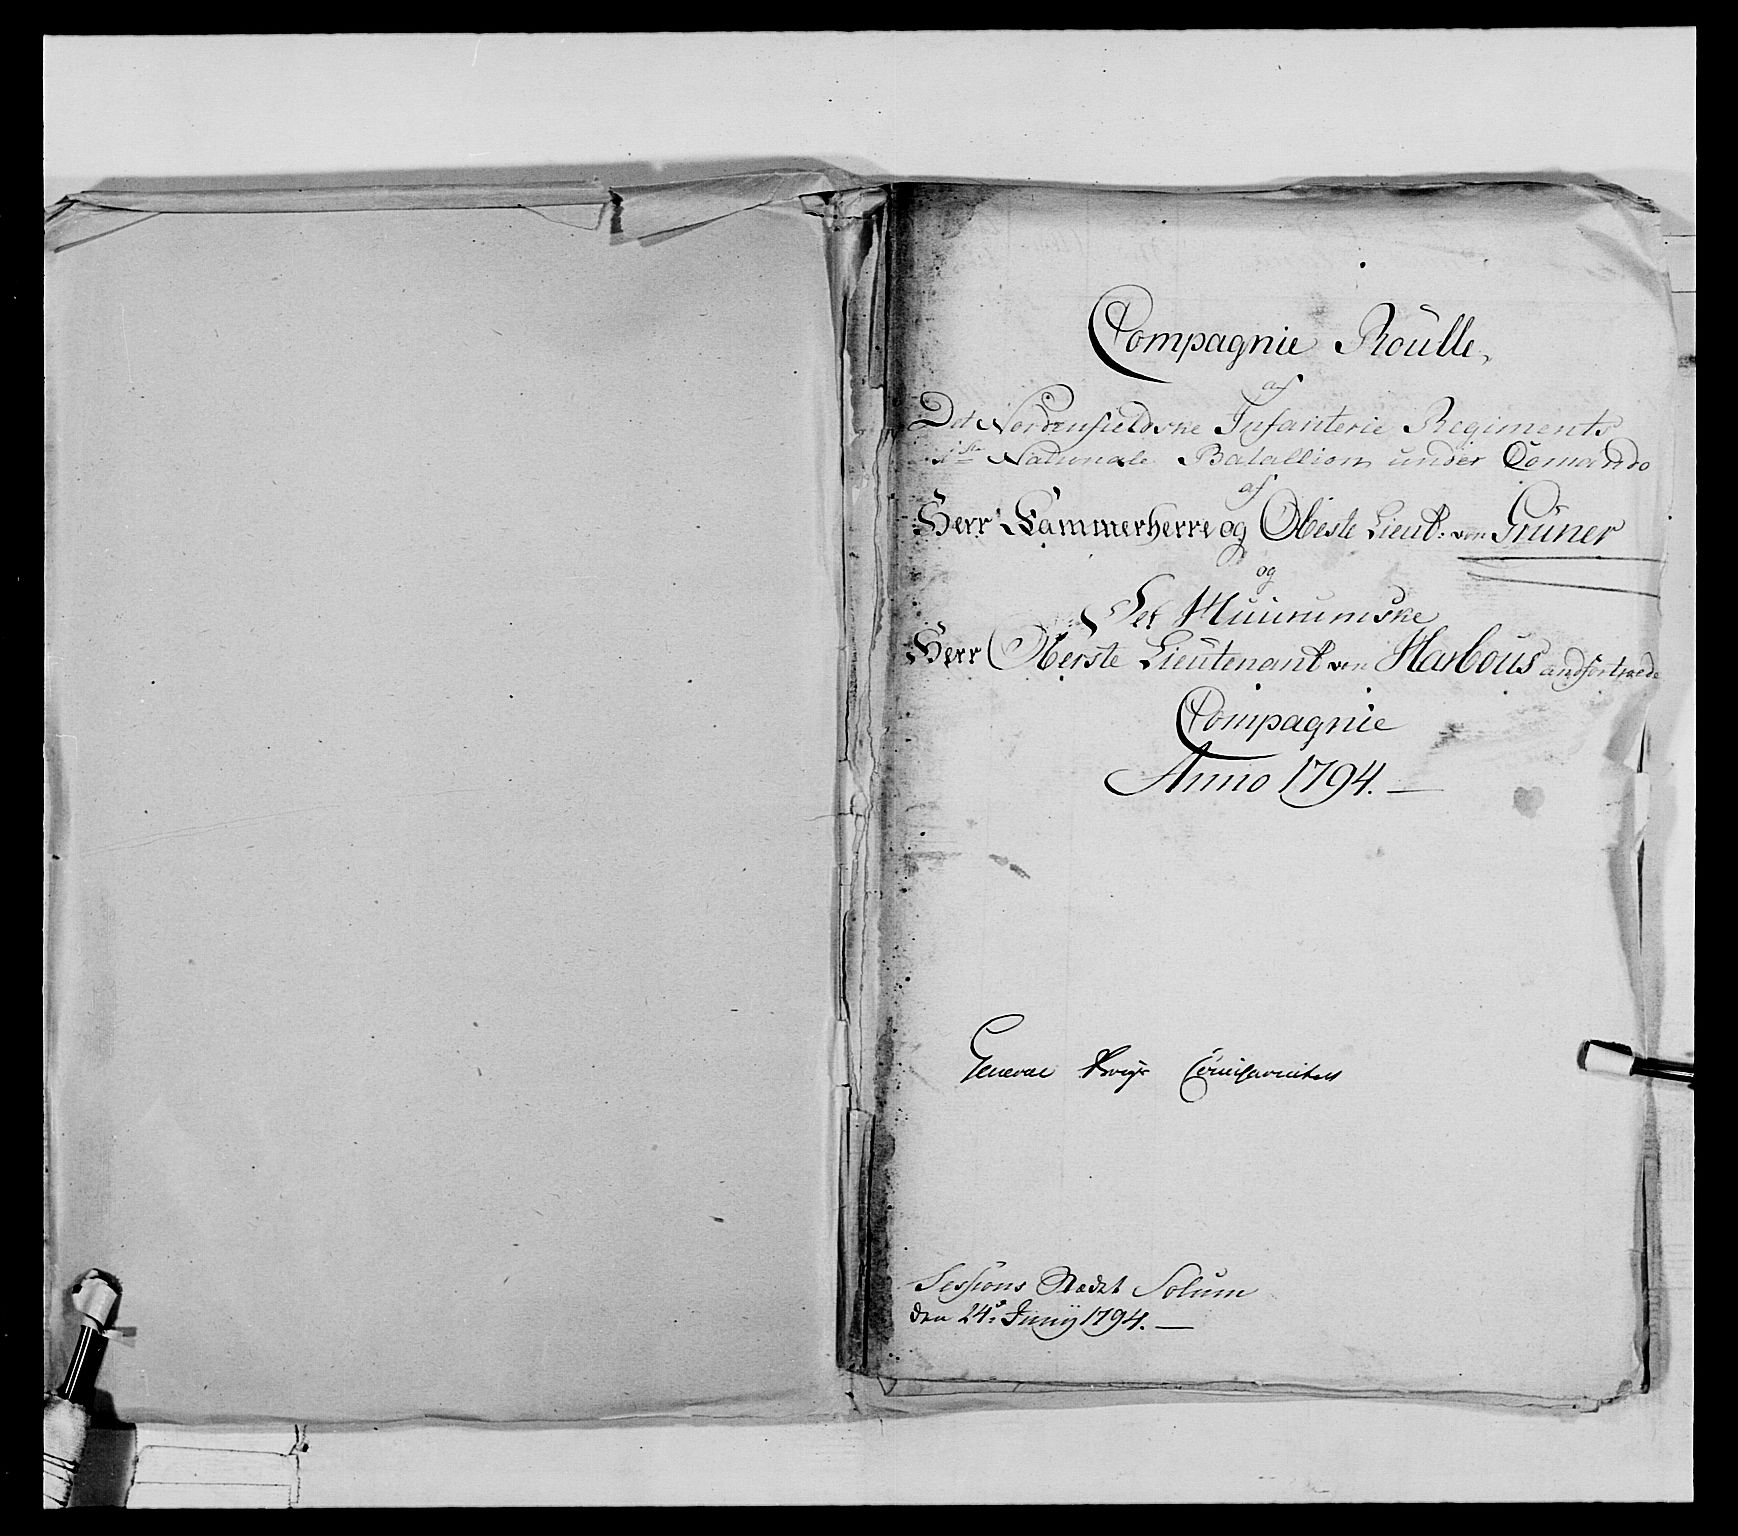 Compagnie Roulle,
af
Det Nordenfieldske Infanterie Regiments
1ste Nationale Batallion under Comando
af
Herr Kammerherre og Obeste Lieut: von Grüner
og
Det
Herr Oberste Lieutenant von Harbous andfortroede
Compagnie
Anno 1794. —
General Krigs
Sessions Stædet Solum
den 24de Junij 1794. —